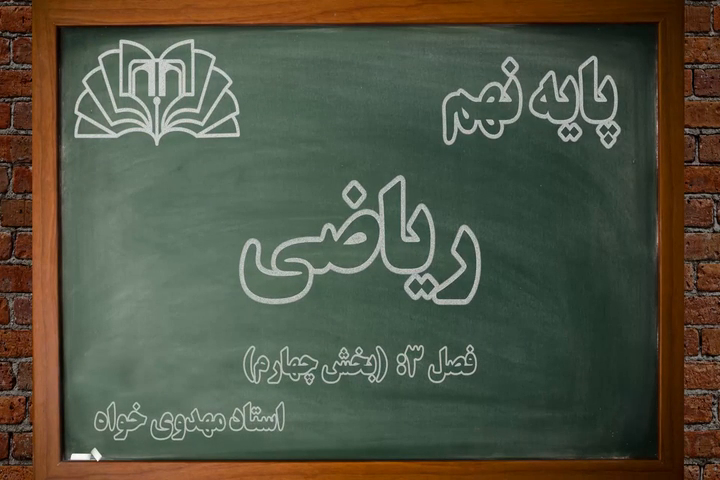 پایه نهم
ریاضی
فصل ۳: (بخش چهارم)
استاد مهدوی خواه